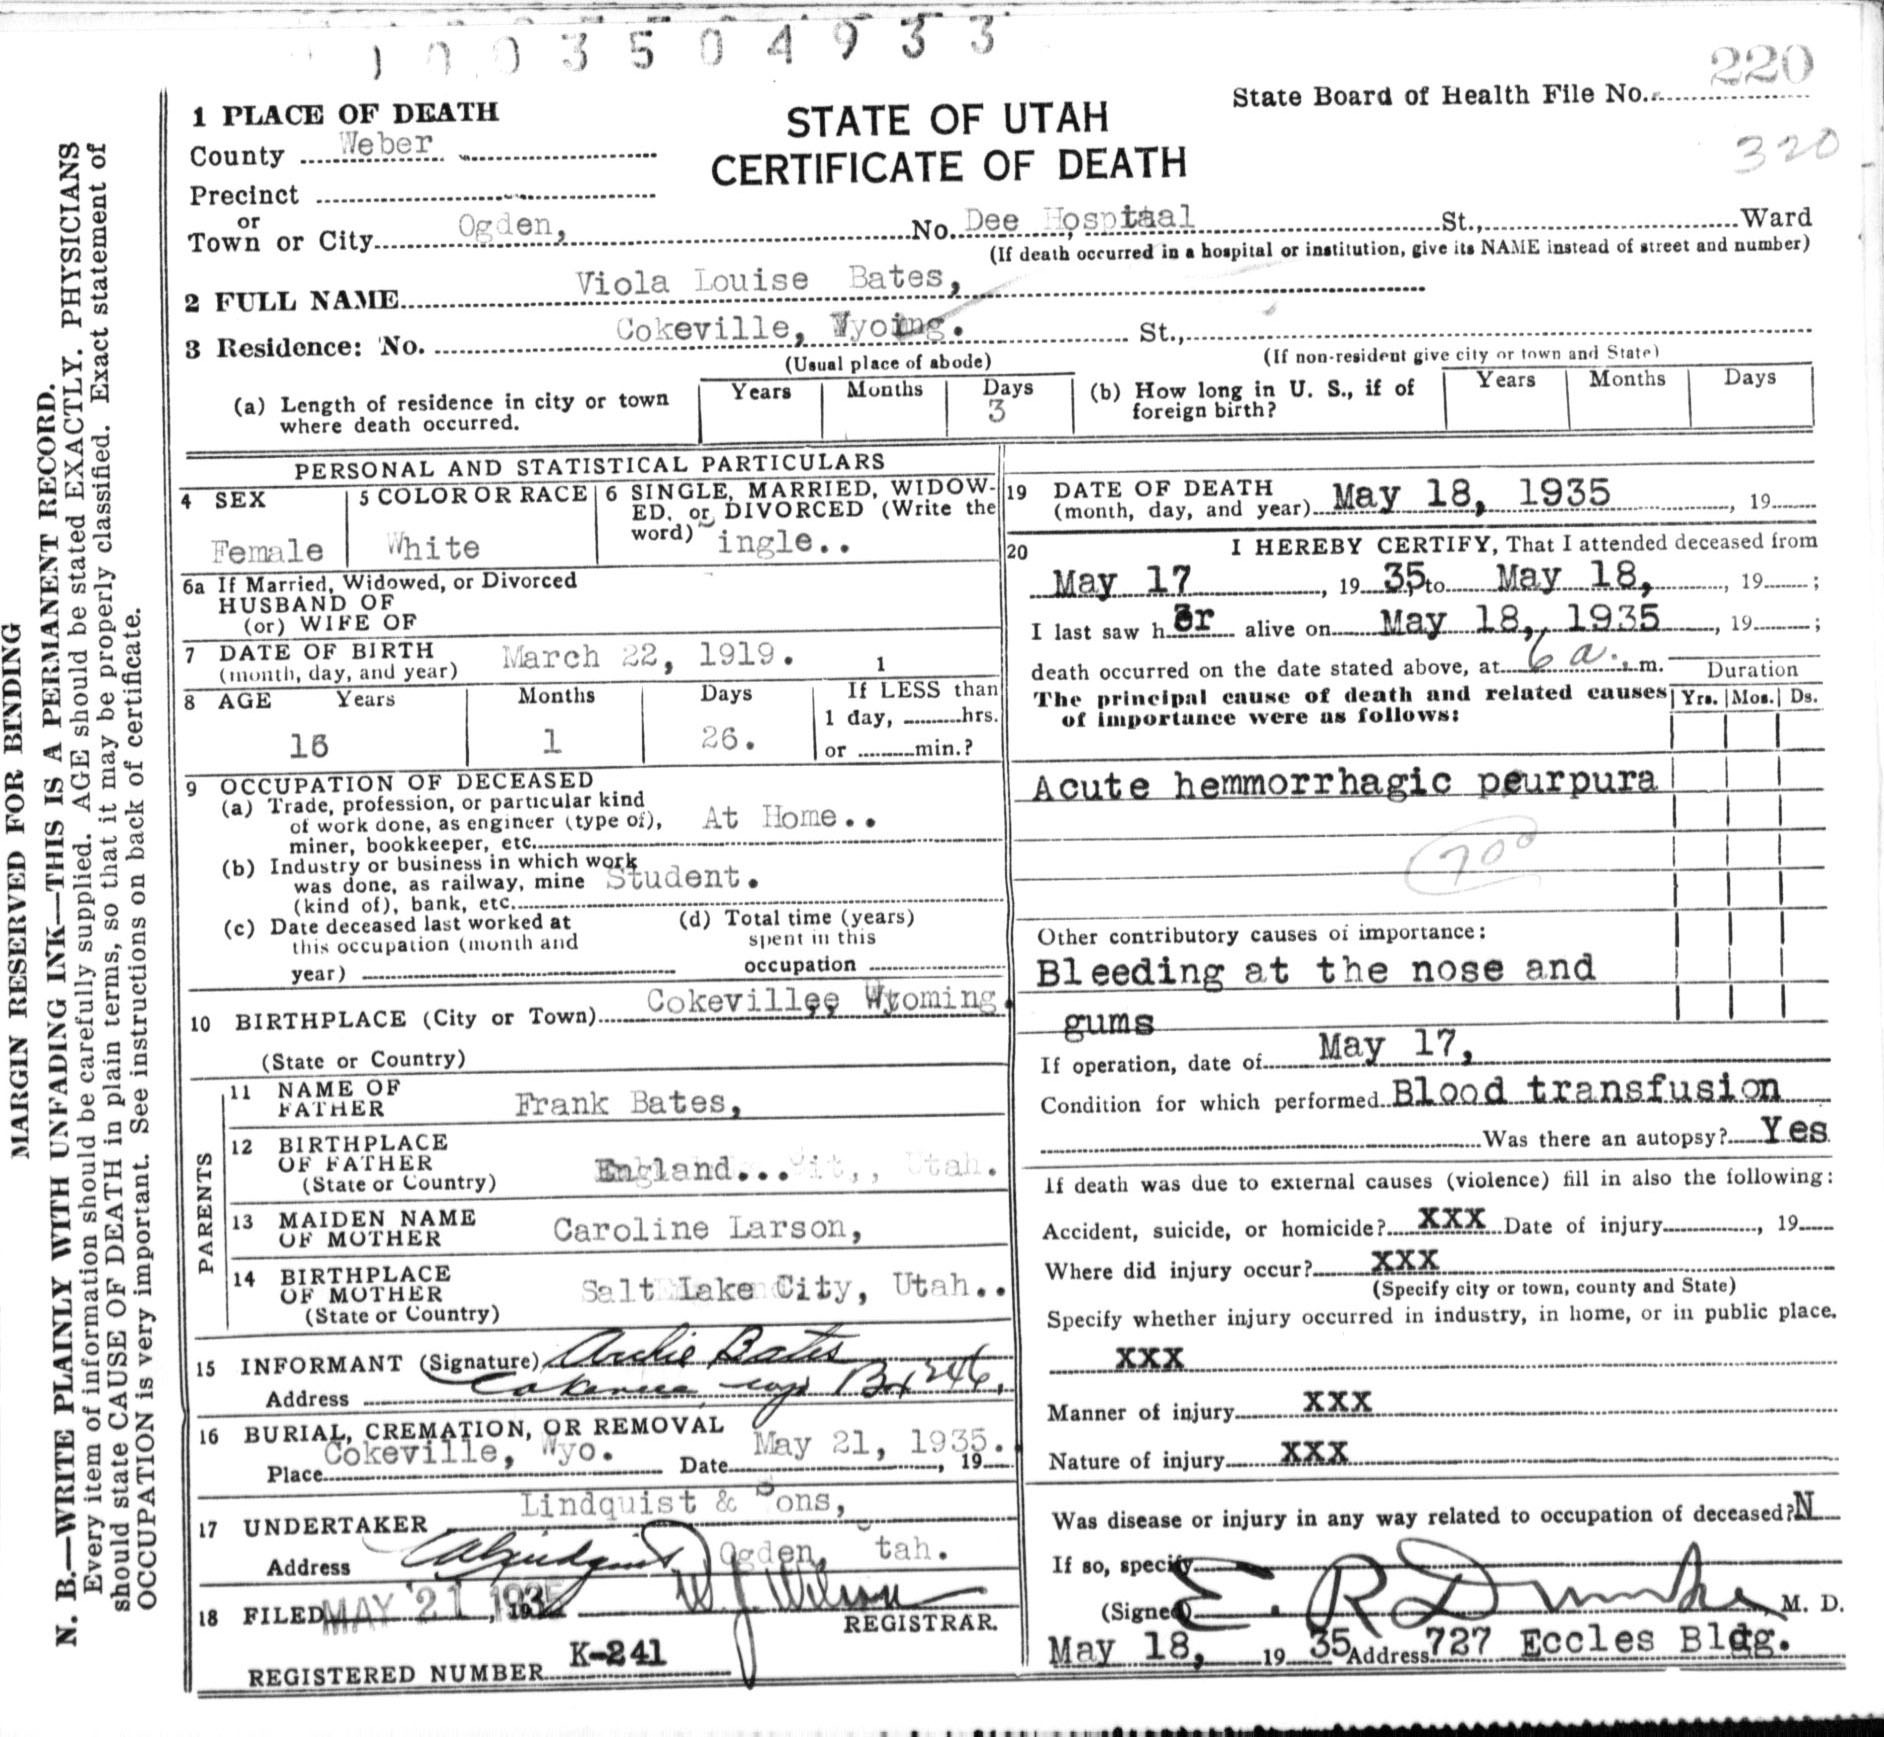 1003504933
220
State Board of Health File No.
320
1 PLACE OF DEATH
STATE OF UTAH
CERTIFICATE OF DEATH
County Weber
Precinct
or
Town or City Ogden, No. Dee Hosptaal St., Ward
(If death occurred in a hospital or institution, give its NAME instead of street and number)
2 FULL NAME Viola Louise Bates,
3 Residence: No. Cokeville, Wyoing. St.,
(Usual place of abode) (If non-resident give city or town and State)
(a) Length of residence in city or town where death occurred. Years Months Days 3
(b) How long in U. S., if of foreign birth? Years Months Days
PERSONAL AND STATISTICAL PARTICULARS
4 SEX Female
5 COLOR OR RACE White
6 SINGLE, MARRIED, WIDOW-
ED, or DIVORCED (Write the
word) ingle..
6a If Married, Widowed, or Divorced
HUSBAND OF
(or) WIFE OF
7 DATE OF BIRTH
(month, day, and year) March 22, 1919. 1
8 AGE Years Months Days If LESS than
1 day, hrs.
16 1 26. or min.?
9 OCCUPATION OF DECEASED
(a) Trade, profession, or particular kind
of work done, as engineer (type of), At Home..
miner, bookkeeper, etc.
(b) Industry or business in which work
was done, as railway, mine Student.
(kind of), bank, etc.
(c) Date deceased last worked at
this occupation (month and
year)
(d) Total time (years)
spent in this
occupation
10 BIRTHPLACE (City or Town) Cokeville, Wyoming.
(State or Country)
PARENTS
11 NAME OF
FATHER Frank Bates,
12 BIRTHPLACE
OF FATHER England...
(State or Country)
13 MAIDEN NAME
OF MOTHER Caroline Larson,
14 BIRTHPLACE
OF MOTHER Salt Lake City, Utah..
(State or Country)
15 INFORMANT (Signature) Archie Bates
Address Cokeville Wyo Box 246,
16 BURIAL, CREMATION, OR REMOVAL
Place Cokeville, Wyo. Date May 21, 1935. , 19
17 UNDERTAKER Lindquist & ons,
Address Ogden, tah.
18 FILED MAY 21 1935 , 19 W. J. Wilson
REGISTRAR.
REGISTERED NUMBER K-241
19 DATE OF DEATH
(month, day, and year) May 18, 1935 , 19
20 I HEREBY CERTIFY, That I attended deceased from
May 17 , 19 35, to May 18, , 19 ;
I last saw h er alive on May 18, 1935 , 19 ;
death occurred on the date stated above, at 6 a. m. Duration
The principal cause of death and related causes Yrs. Mos. Ds.
of importance were as follows:
Acute hemmorrhagic peurpura
700
Other contributory causes of importance:
Bleeding at the nose and
gums
If operation, date of May 17,
Condition for which performed Blood transfusion
Was there an autopsy? Yes
If death was due to external causes (violence) fill in also the following:
Accident, suicide, or homicide? XXX Date of injury , 19
Where did injury occur? XXX
(Specify city or town, county and State)
Specify whether injury occurred in industry, in home, or in public place.
XXX
Manner of injury XXX
Nature of injury XXX
Was disease or injury in any way related to occupation of deceased? N
If so, specify
(Signed) E. R. Dumke, M. D.
May 18, 19 35 Address 727 Eccles Bldg.
MARGIN RESERVED FOR BINDING
N. B.—WRITE PLAINLY WITH UNFADING INK—THIS IS A PERMANENT RECORD.
Every item of information should be carefully supplied. AGE should be stated EXACTLY. PHYSICIANS
should state CAUSE OF DEATH in plain terms, so that it may be properly classified. Exact statement of
OCCUPATION is very important. See instructions on back of certificate.